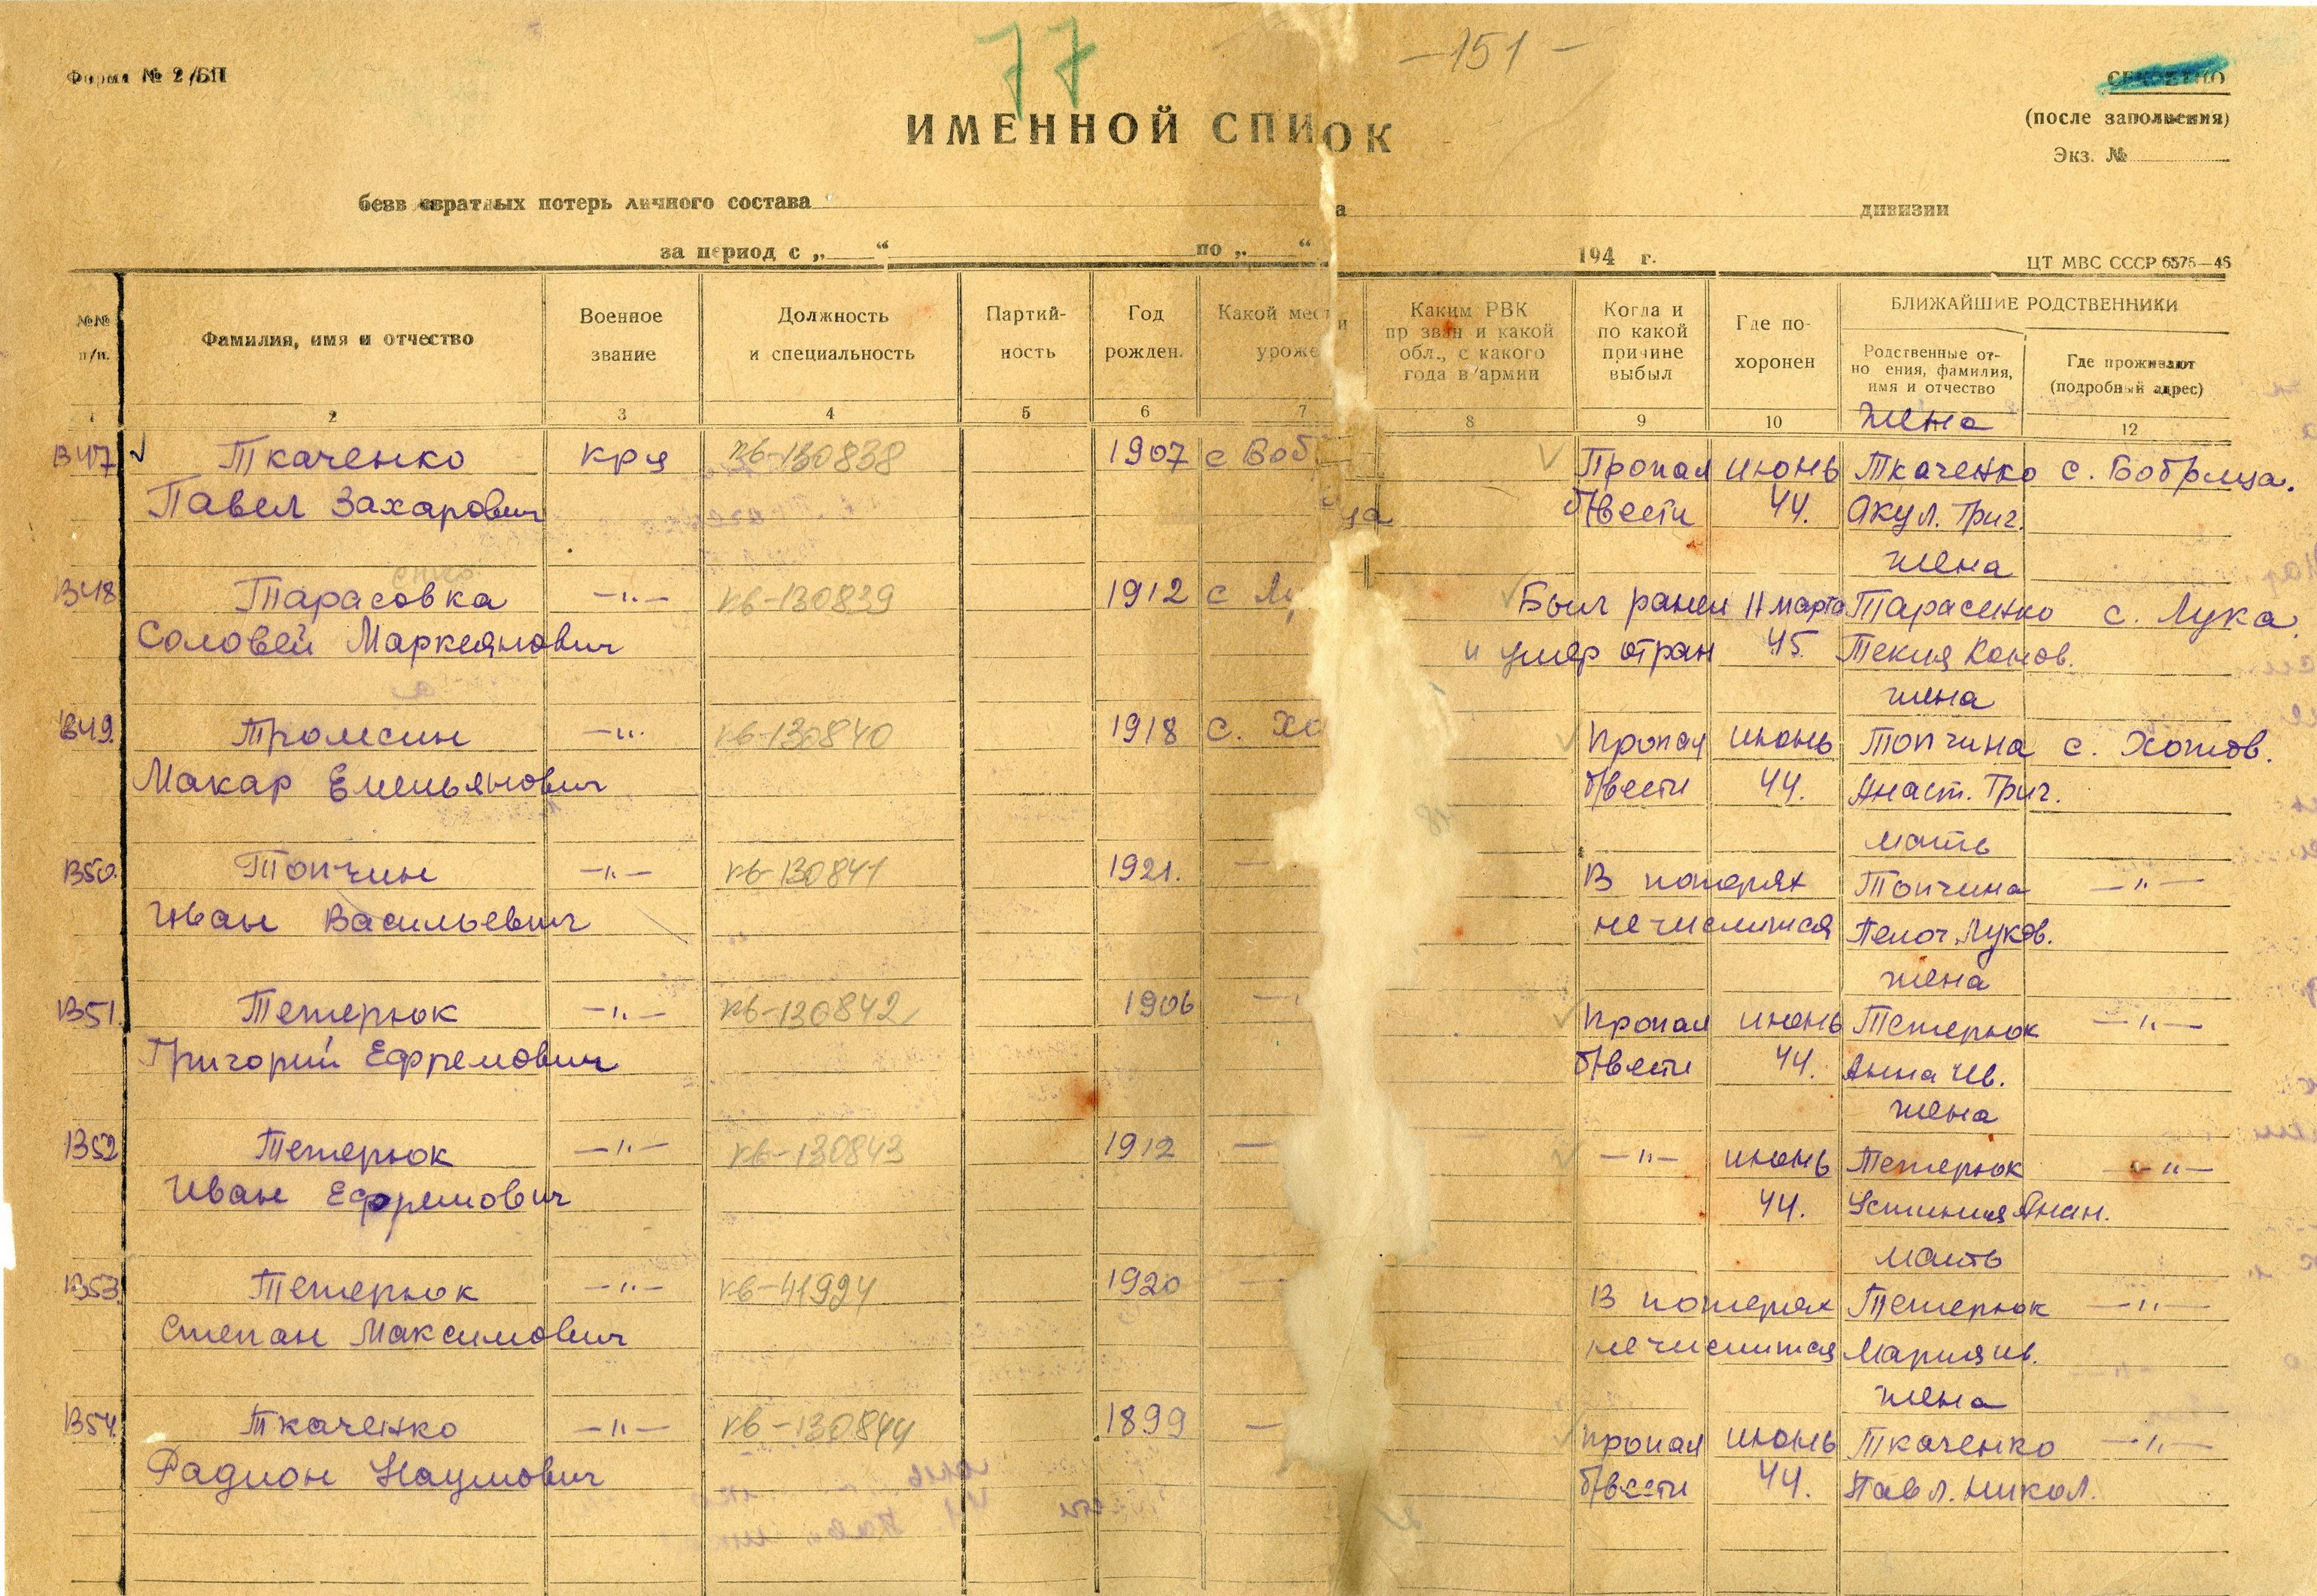 77
-151-
Форма № 2/БП
СЕКРЕТНО
(после заполнения)
Экз. №
ИМЕННОЙ СПИ ОК
безвозвратных потерь личного состава а дивизии
за период с „ “ по „ “ 194 г.
ЦТ МВС СССР 6575—46
№№ п/п.
Фамилия, имя и отчество
Военное звание
Должность и специальность
Партийность
Год рожден.
Какой мест и уроже
Каким РВК пр зван и какой обл., с какого года в армии
Когда и по какой причине выбыл
Где похоронен
БЛИЖАЙШИЕ РОДСТВЕННИКИ
Родственные от- но ения, фамилия, имя и отчество
Где проживают (подробный адрес)
1 2 3 4 5 6 7 8 9 10 12
жена
В47 Ткаченко кря кв-130838 1907 с Воб Пропал июнь Ткаченко с. Бобрица.
Павел Захарович ца б/вести 44. Акул. Григ.
жена
енко
В48 Тарасовка -"- кв-130839 1912 с Лу Был ранен 11 марта Тарасенко с. Лука.
Соловей Маркеянович и умер от ран 45. Текля Конов.
жена
В49. Тромсин -"- кв-130840 1918 с. Хо Пропал июнь Топчина с. Хотов.
Макар Емельянович б/вести 44. Анаст. Григ.
мать
В50. Топчин -"- кв-130841 1921. — В потерях Топчина -"-
Иван Васильевич не числится Пелог. Луков.
жена
В51. Тетерюк -"- кв-130842 1906 — Пропал июнь Тетерюк -"-
Григорий Ефремович б/вести 44. Анна Ив.
жена
В52 Тетерюк -"- кв-130843 1912 — -"- июнь Тетерюк -"-
Иван Ефремович 44. Устиния Анан.
мать
В53. Тетерюк -"- кв-41994 1920 — В потерях Тетерюк -"-
Степан Максимович не числится Мария ив.
жена
В54. Ткаченко -"- кв-130844 1899 — пропал июнь Ткаченко -"-
Радион Наумович б/вести 44. Павл. Никол.